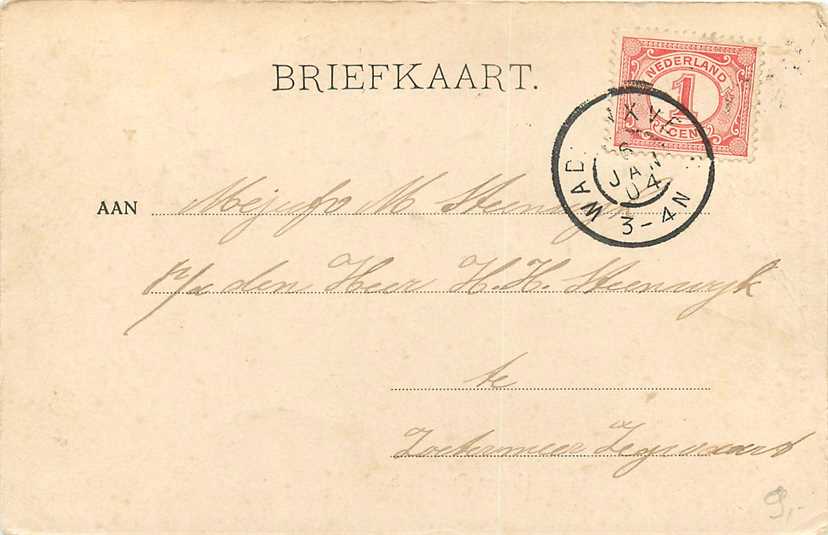 BRIEFKAART.
NEDERLAND
1
CENT
WAD
6
JAN
04
3-4N
AAN Mejufv M Steenwijk
p/a den Heer H. H. Steenwijk
te
Zoetermeer Zegwaart
9,-